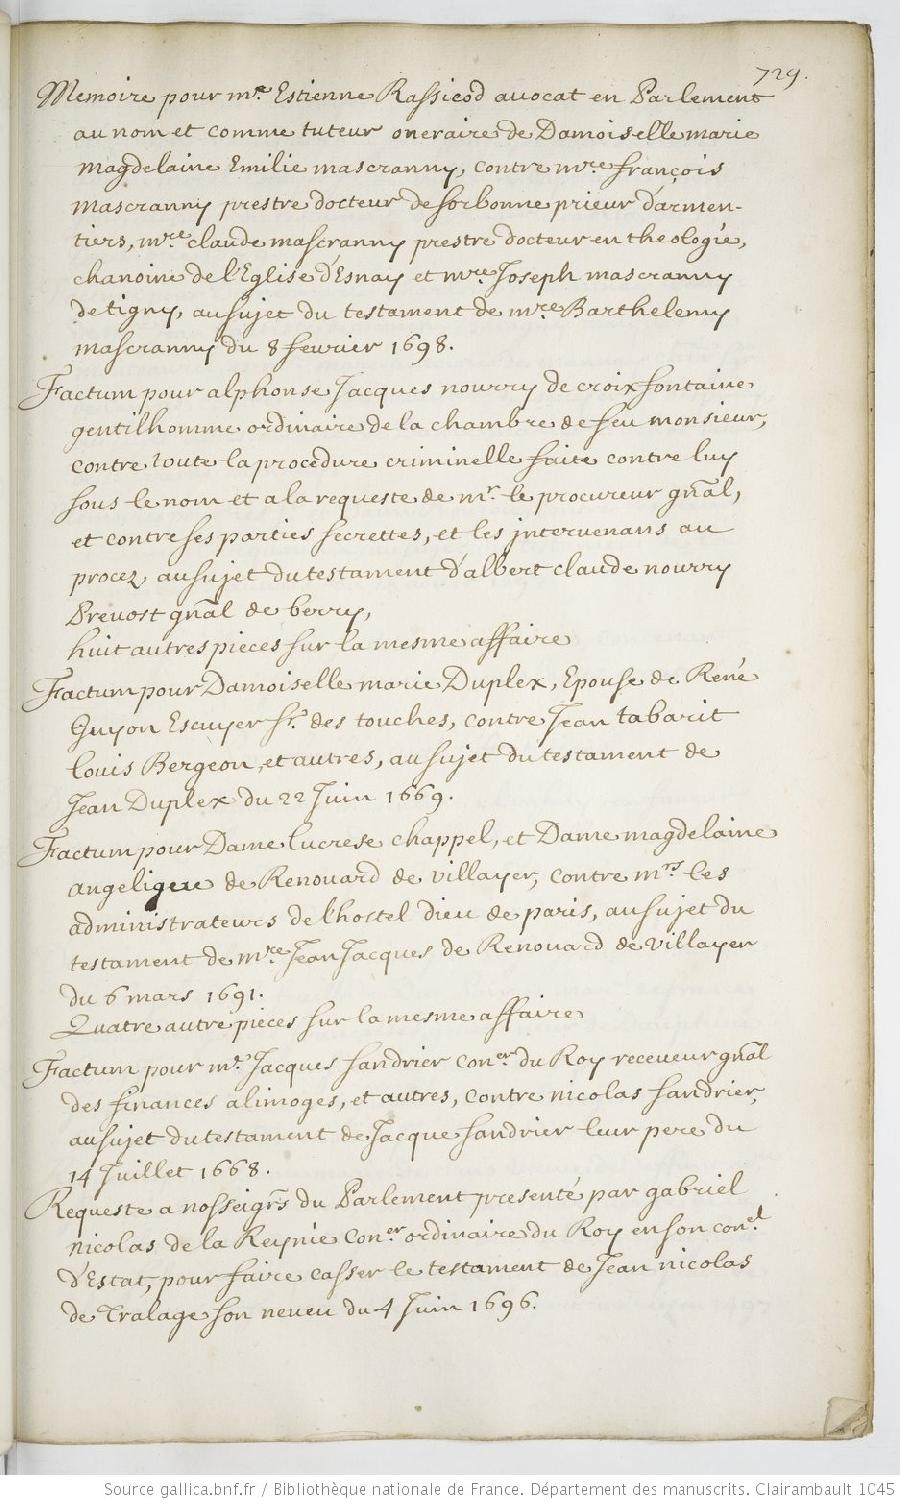 729.
Memoire pour mre Estienne Rassicod avocat en Parlement
au nom et comme tuteur oneraire de Damoiselle marie
magdelaine Emilie mascranny, contre mre françois
mascranny prestre docteur de sorbonne prieur d'armen-
tiers, mre claude mascranny prestre docteur en theologie,
chanoine de l'Eglise d'Esnay et mre Joseph mascranny
de tigny, au sujet du testament de mre Barthelemy
mascranny du 8 fevrier 1698.
Factum pour alphonse Jacques nourry de croixfontaine
gentilhomme ordinaire de la chambre de feu monsieur,
contre toute la procedure criminelle faite contre luy
sous le nom et a la requeste de mr le procureur gnal,
et contre ses parties secrettes, et les intervenans au
procez au sujet du testament d'albert claude nourry
Prevost gnal de berry,
huit autres pieces sur la mesme affaire
Factum pour Damoiselle marie Duplex, Epouse de René
Guyon Escuyer sr. des touches, contre Jean tabarit
Louis Bergeon, et autres, au sujet du testament de
Jean Duplex du 22 Juin 1669.
Factum pour Dame lucrese chappel, et Dame magdelaine
angelique de Renouard de villayer, contre mrs les
administrateurs de l'hostel dieu de paris, au sujet du
testament de mre Jean Jacques de Renouard de villayer
du 6 mars 1691.
Quatre autre pieces sur la mesme affaire
Factum pour mr. Jacques sandrier coner du Roy receveur gnal
des finances a limoges, et autres, contre nicolas sandrier,
au sujet du testament de Jacque sandrier leur pere du
14 Juillet 1668.
Requeste a nosseigrs du Parlement presenté par gabriel
nicolas de la Reynie coner ordinaire du Roy en son conel
d'Estat, pour faire casser le testament de Jean nicolas
de Tralage son neveu du 4 Juin 1696.
Source gallica.bnf.fr / Bibliothèque nationale de France. Département des manuscrits. Clairambault 1045